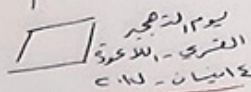 يوم التهجير
القسري - اللاعودة
١٤ نيسان - ٢٠١٧